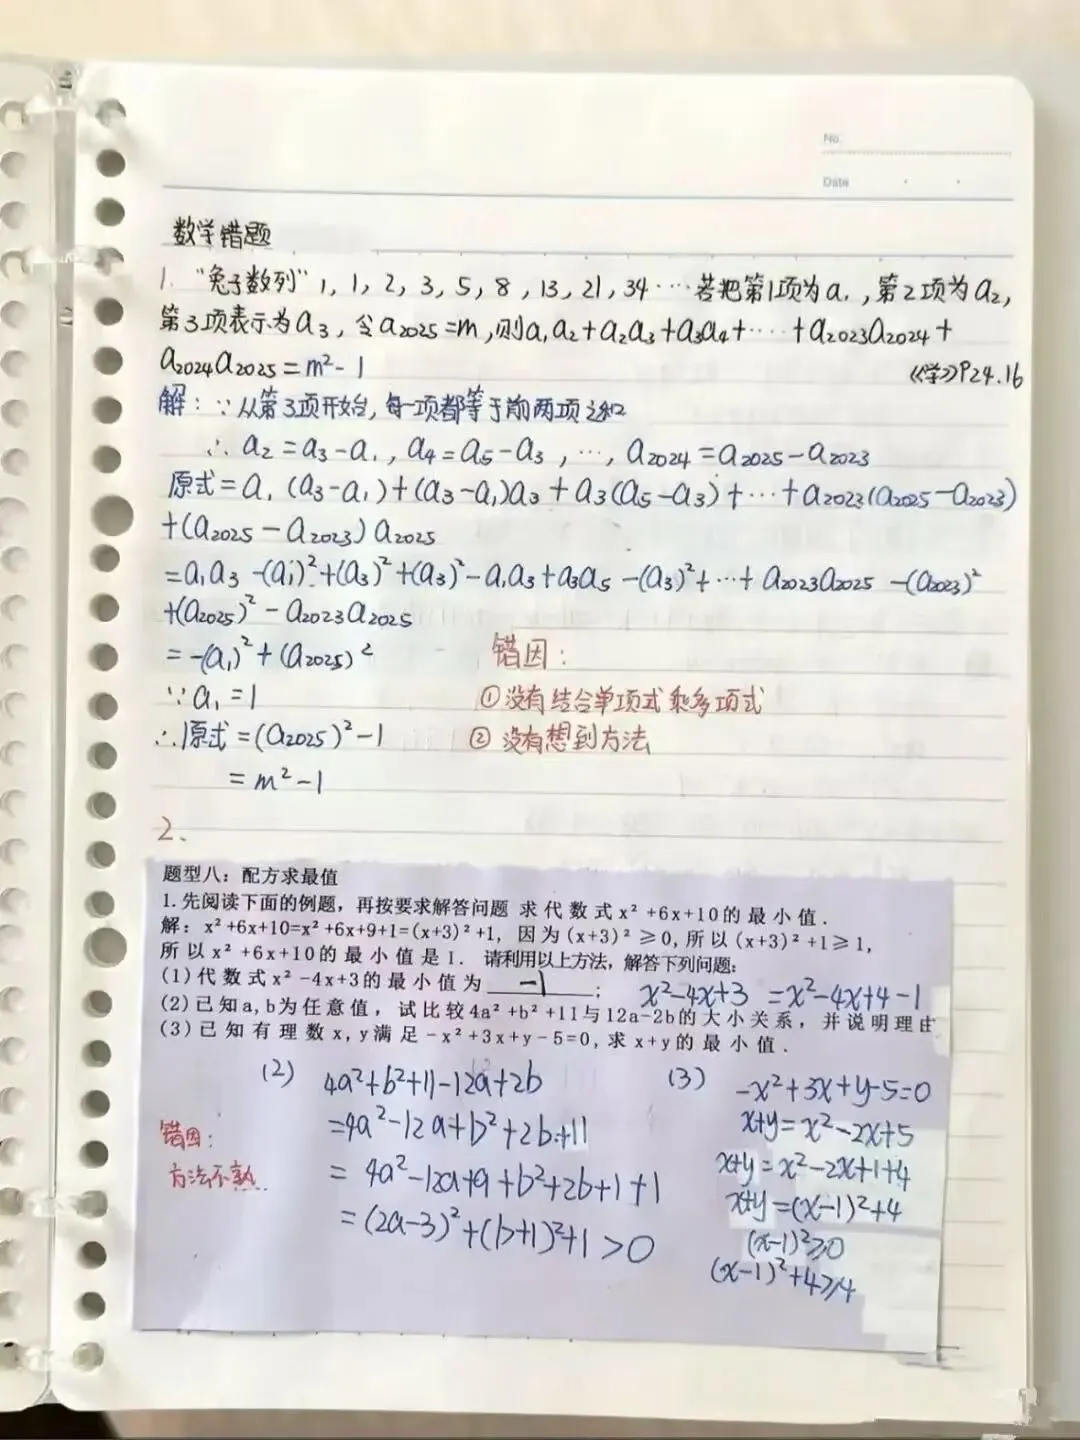 No.
Date
数学错题
1. “兔子数列” 1, 1, 2, 3, 5, 8, 13, 21, 34 …… 若把第1项为a₁, 第2项为a₂,
第3项表示为a₃, 令a₂₀₂₅=m, 则a₁a₂+a₂a₃+a₃a₄+……+a₂₀₂₃a₂₀₂₄+
a₂₀₂₄a₂₀₂₅=m²-1
《学》P24.16
解: ∵从第3项开始, 每一项都等于前两项之和
∴ a₂=a₃-a₁, a₄=a₅-a₃, …, a₂₀₂₄=a₂₀₂₅-a₂₀₂₃
原式=a₁(a₃-a₁)+(a₃-a₁)a₃+a₃(a₅-a₃)+…+a₂₀₂₃(a₂₀₂₅-a₂₀₂₃)
+(a₂₀₂₅-a₂₀₂₃)a₂₀₂₅
=a₁a₃-(a₁)²+(a₃)²+(a₃)²-a₁a₃+a₃a₅-(a₃)²+…+a₂₀₂₃a₂₀₂₅-(a₂₀₂₃)²
+(a₂₀₂₅)²-a₂₀₂₃a₂₀₂₅
=-(a₁)²+(a₂₀₂₅)²
∵a₁=1
∴原式=(a₂₀₂₅)²-1
=m²-1
错因:
①没有结合单项式乘多项式
②没有想到方法
2、
题型八：配方求最值
1.先阅读下面的例题，再按要求解答问题 求代数式x²+6x+10的最小值.
解：x²+6x+10=x²+6x+9+1=(x+3)²+1, 因为(x+3)²≥0,所以(x+3)²+1≥1,
所以x²+6x+10的最小值是1. 请利用以上方法，解答下列问题：
(1)代数式x²-4x+3的最小值为 -1 ; x²-4x+3 =x²-4x+4-1
(2)已知a,b为任意值，试比较4a²+b²+11与12a-2b的大小关系，并说明理由
(3)已知有理数x,y满足-x²+3x+y-5=0,求x+y的最小值.
(2) 4a²+b²+11-12a+2b
=4a²-12a+b²+2b+11
=4a²-12a+9+b²+2b+1+1
=(2a-3)²+(b+1)²+1>0
错因:
方法不熟
(3) -x²+3x+y-5=0
x+y=x²-2x+5
x+y=x²-2x+1+4
x+y=(x-1)²+4
(x-1)²≥0
(x-1)²+4≥4